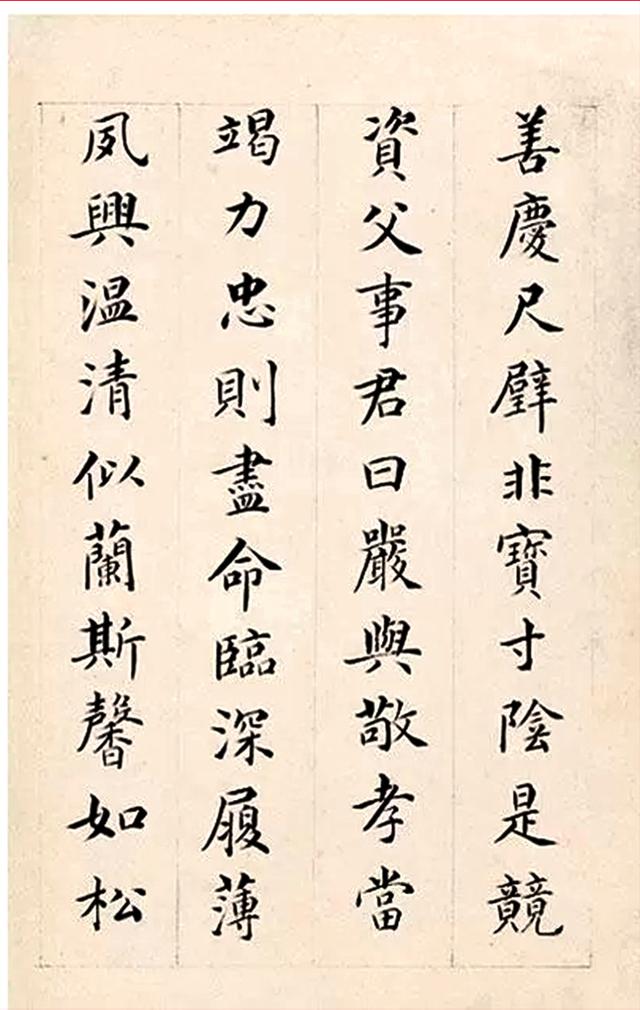 善慶尺璧非寶寸陰是競
資父事君曰嚴與敬孝當
竭力忠則盡命臨深履薄
夙興温清似蘭斯馨如松